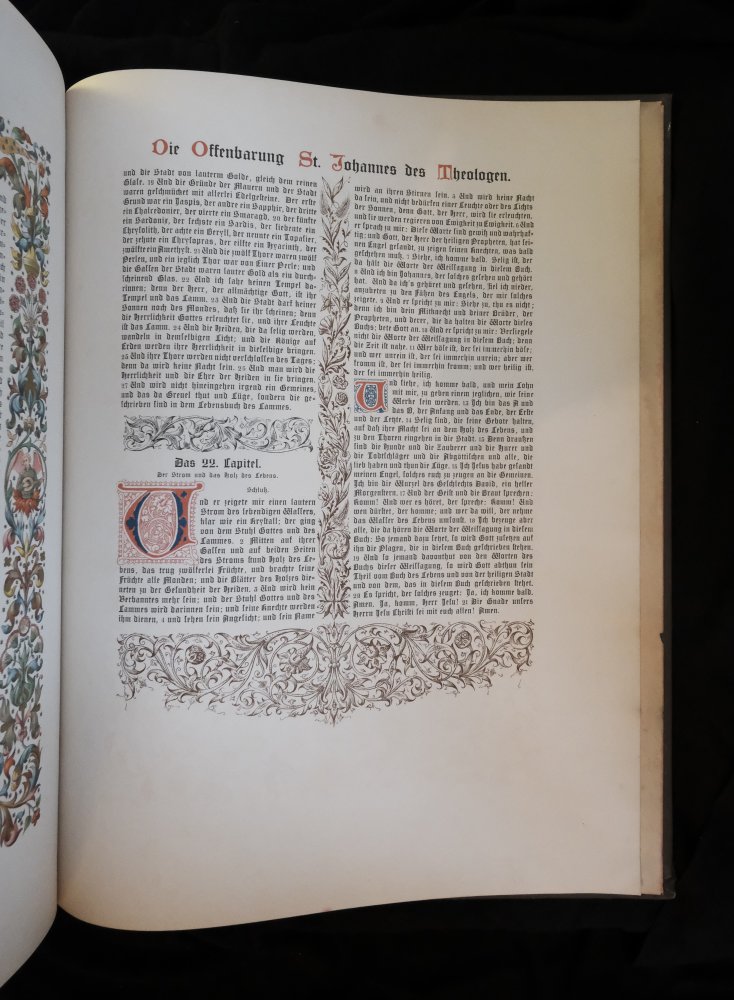 Die Offenbarung St. Johannes des Theologen.
und die Stadt von lauterm Golde, gleich dem reinen
Glase. 19 Und die Gründe der Mauern und der Stadt
waren geschmücket mit allerlei Edelgesteine. Der erste
Grund war ein Jaspis, der andre ein Sapphir, der dritte
ein Chalcedonier, der vierte ein Smaragd, 20 der fünfte
ein Sardonix, der sechste ein Sardis, der siebente ein
Chrysolith, der achte ein Beryll, der neunte ein Topasier,
der zehnte ein Chrysopras, der eilfte ein Hyacinth, der
zwölfte ein Amethyst. 21 Und die zwölf Thore waren zwölf
Perlen, und ein jeglich Thor war von Einer Perle; und
die Gassen der Stadt waren lauter Gold als ein durch-
scheinend Glas. 22 Und ich sahe keinen Tempel da-
rinnen; denn der Herr, der allmächtige Gott, ist ihr
Tempel und das Lamm. 23 Und die Stadt darf keiner
Sonnen noch des Mondes, daß sie ihr scheinen; denn
die Herrlichkeit Gottes erleuchtet sie, und ihre Leuchte
ist das Lamm. 24 Und die Heiden, die da selig werden,
wandeln in demselbigen Licht; und die Könige auf
Erden werden ihre Herrlichkeit in dieselbige bringen.
25 Und ihre Thore werden nicht verschlossen des Tages;
denn da wird keine Nacht sein. 26 Und man wird die
Herrlichkeit und die Ehre der Heiden in sie bringen.
27 Und wird nicht hineingehen irgend ein Gemeines,
und das da Greuel thut und Lüge, sondern die ge-
schrieben sind in dem Lebensbuch des Lammes.
Das 22. Capitel.
Der Strom und das Holz des Lebens.
Schluß.
Und er zeigete mir einen lautern
Strom des lebendigen Wassers,
klar wie ein Krystall; der ging
von dem Stuhl Gottes und des
Lammes. 2 Mitten auf ihrer
Gassen und auf beiden Seiten
des Stroms stund Holz des Le-
bens, das trug zwölferlei Früchte, und brachte seine
Früchte alle Monden; und die Blätter des Holzes die-
neten zu der Gesundheit der Heiden. 3 Und wird kein
Verbanntes mehr sein; und der Stuhl Gottes und des
Lammes wird darinnen sein; und seine Knechte werden
ihm dienen, 4 und sehen sein Angesicht; und sein Name
wird an ihren Stirnen sein. 5 Und wird keine Nacht
da sein, und nicht bedürfen einer Leuchte oder des Lichts
der Sonnen, denn Gott, der Herr, wird sie erleuchten,
und sie werden regieren von Ewigkeit zu Ewigkeit. 6 Und
er sprach zu mir: Diese Worte sind gewiß und wahrhaf-
tig; und Gott, der Herr der heiligen Propheten, hat sei-
nen Engel gesandt, zu zeigen seinen Knechten, was bald
geschehen muß. 7 Siehe, ich komme bald. Selig ist, der
da hält die Worte der Weissagung in diesem Buch.
8 Und ich bin Johannes, der solches gesehen und gehört
hat. Und da ich's gehöret und gesehen, fiel ich nieder,
anzubeten zu den Füßen des Engels, der mir solches
zeigete. 9 Und er spricht zu mir: Siehe zu, thu es nicht;
denn ich bin dein Mitknecht und deiner Brüder, der
Propheten, und derer, die da halten die Worte dieses
Buchs; bete Gott an. 10 Und er spricht zu mir: Versiegele
nicht die Worte der Weissagung in diesem Buch; denn
die Zeit ist nahe. 11 Wer böse ist, der sei immerhin böse;
und wer unrein ist, der sei immerhin unrein; aber wer
fromm ist, der sei immerhin fromm; und wer heilig ist,
der sei immerhin heilig.
Und siehe, ich komme bald, und mein Lohn
mit mir, zu geben einem jeglichen, wie seine
Werke sein werden. 13 Ich bin das A und
das O, der Anfang und das Ende, der Erste
und der Letzte. 14 Selig sind, die seine Gebote halten,
auf daß ihre Macht sei an dem Holz des Lebens, und
zu den Thoren eingehen in die Stadt. 15 Denn draußen
sind die Hunde und die Zauberer und die Hurer und
die Todtschläger und die Abgöttischen und alle, die
lieb haben und thun die Lüge. 16 Ich Jesus habe gesandt
meinen Engel, solches euch zu zeugen an die Gemeinen.
Ich bin die Wurzel des Geschlechts David, ein heller
Morgenstern. 17 Und der Geist und die Braut sprechen:
Komm! Und wer es höret, der spreche: Komm! Und
wen dürstet, der komme; und wer da will, der nehme
das Wasser des Lebens umsonst. 18 Ich bezeuge aber
alle, die da hören die Worte der Weissagung in diesem
Buch: So jemand dazu setzet, so wird Gott zusetzen auf
ihn die Plagen, die in diesem Buch geschrieben stehen.
19 Und so jemand davonthut von den Worten des
Buchs dieser Weissagung, so wird Gott abthun sein
Theil vom Buch des Lebens und von der heiligen Stadt
und von dem, das in diesem Buch geschrieben stehet.
20 Es spricht, der solches zeuget: Ja, ich komme bald.
Amen. Ja, komm, Herr Jesu! 21 Die Gnade unsers
Herrn Jesu Christi sei mit euch allen! Amen.